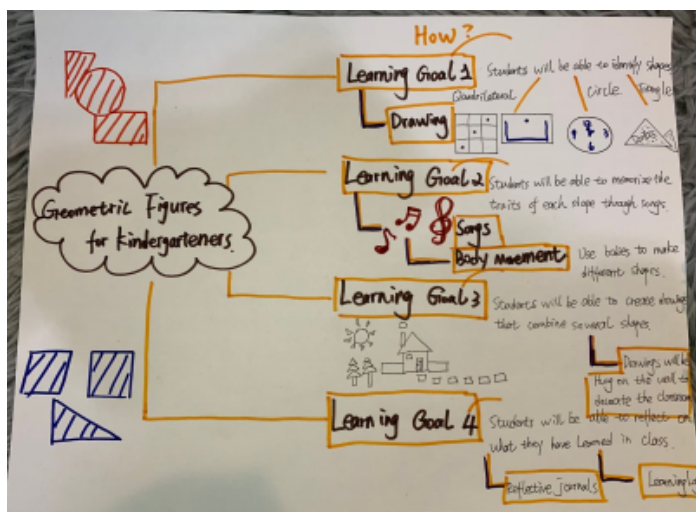 How?
Learning Goal 1
Students will be able to identify shapes
Quadrilateral
Circle
Drawing
Geometric Figures
for Kindergarteners.
Learning Goal 2
Students will be able to memorize the
traits of each slope through songs.
Songs
Body movement
Use bodies to make
different shapes.
Learning Goal 3
Students will be able to create drawings
that combine several slopes.
Drawings will be
Hung on the wall to
decorate the classroom
Learning Goal 4
Students will be able to reflect on
what they have learned in class.
Reflective journals
Learning